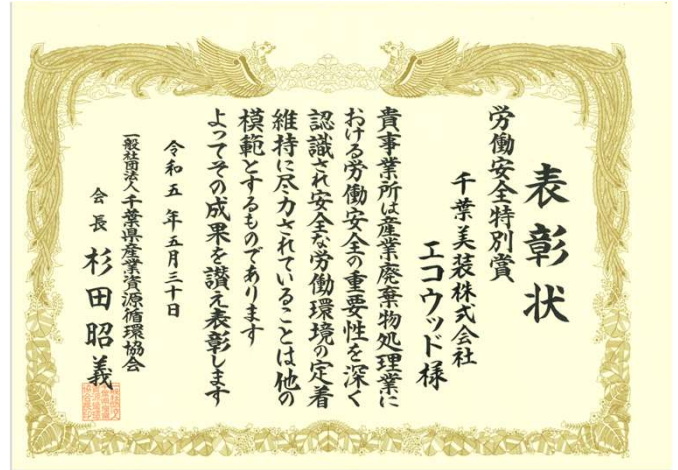 表彰状
労働安全特別賞
千葉美装株式会社
エコウッド様
貴事業所は産業廃棄物処理業に
おける労働安全の重要性を深く
認識され安全な労働環境の定着
維持に尽力されていることは他の
模範とするものであります
よってその成果を讃え表彰します
令和五年五月三十日
一般社団法人千葉県産業資源循環協会
会長 杉田昭義